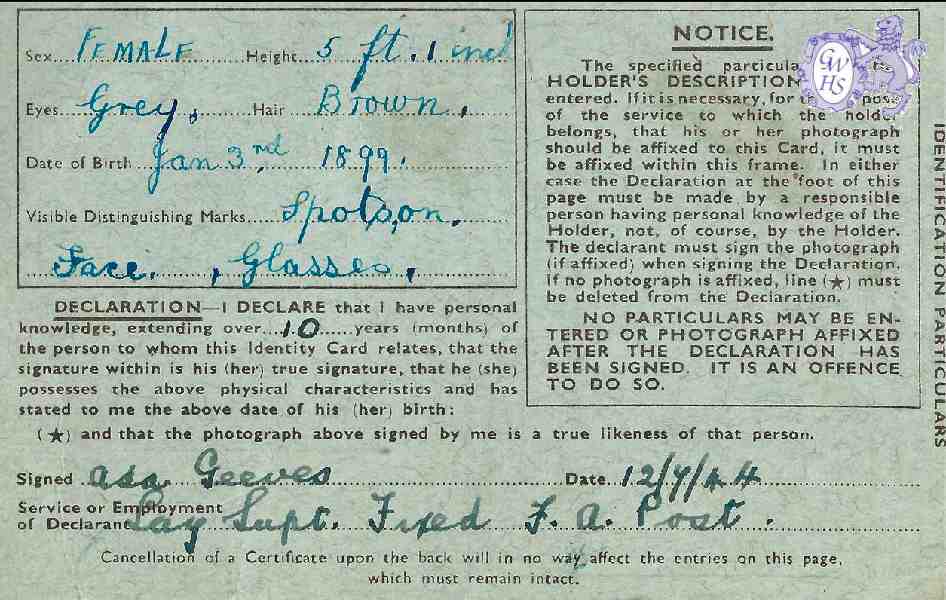 Sex....FEMALE....Height 5 ft. 1 inch
Eyes Grey, Hair Brown,
Date of Birth Jan 3rd 1899.
Visible Distinguishing Marks Spots, on,
Face. , Glasses,
DECLARATION—I DECLARE that I have personal
knowledge, extending over 10 years (months) of
the person to whom this Identity Card relates, that the
signature within is his (her) true signature, that he (she)
possesses the above physical characteristics and has
stated to me the above date of his (her) birth:
NOTICE.
The specified particula
HOLDER'S DESCRIPTION
entered. If it is necessary, for
of the service to which the holder
belongs, that his or her photograph
should be affixed to this Card, it must
be affixed within this frame. In either
case the Declaration at the foot of this
page must be made by a responsible
person having personal knowledge of the
Holder, not, of course, by the Holder.
The declarant must sign the photograph
(if affixed) when signing the Declaration.
If no photograph is affixed, line (★) must
be deleted from the Declaration.
NO PARTICULARS MAY BE EN-
TERED OR PHOTOGRAPH AFFIXED
AFTER THE DECLARATION HAS
BEEN SIGNED. IT IS AN OFFENCE
TO DO SO.
GWHS
IDENTIFICATION PARTICULARS
(★) and that the photograph above signed by me is a true likeness of that person.
Signed Ada. Geeves Date 12/4/44
Service or Employment
of Declarant Lay Supt. Fixed F. A. Post.
Cancellation of a Certificate upon the back will in no way affect the entries on this page,
which must remain intact.